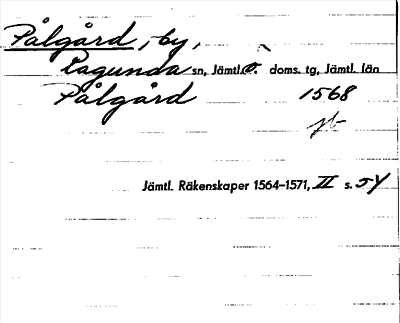 Pålgård, by,
Ragunda sn, Jämtl. ö. doms. tg, Jämtl. län
Pålgård 1568
Jämtl. Räkenskaper 1564–1571, II s. 54